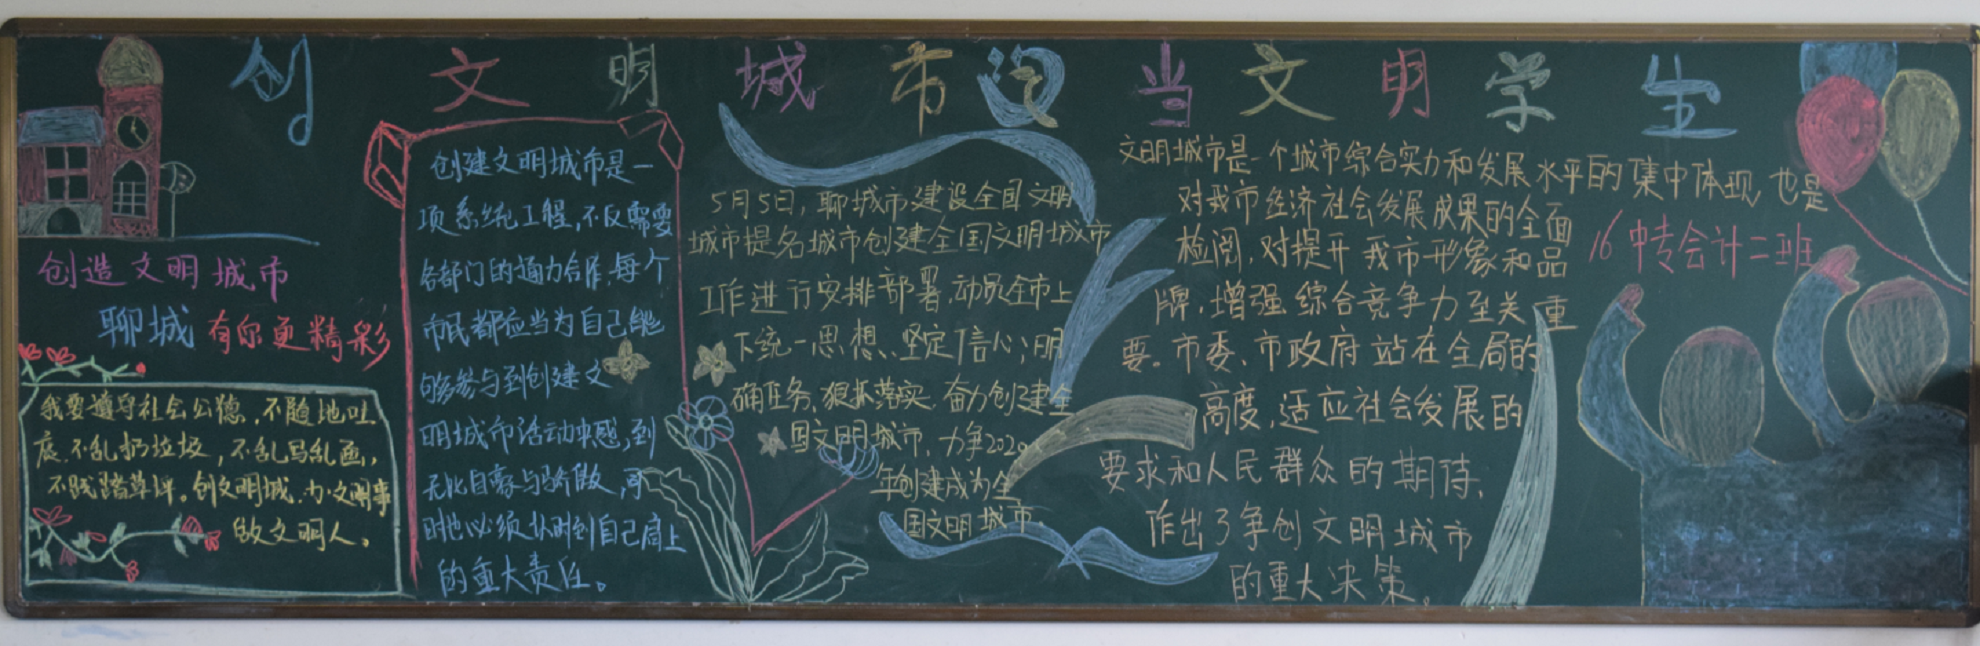 创文明城市 当文明学生
创造文明城市
聊城有你更精彩
我要遵守社会公德,不随地吐
痰.不乱扔垃圾,不乱写乱画,
不践踏草坪。创文明城.办文明事
做文明人。
创建文明城市是一
项系统工程,不仅需要
各部门的通力合作,每个
市民都应当为自己能
够参与到创建文
明城市活动中感到
无比自豪与骄傲,同
时也必须认时到自己肩上
的重大责任。
5月5日,聊城市建设全国文明
城市提名城市创建全国文明城市
工作进行安排部署,动员全市上
下统一思想、坚定信心;明
确任务、狠抓落实、奋力创建全
国文明城市,力争2020
年创建成为全
国文明城市。
文明城市是一个城市综合实力和发展水平的集中体现,也是
对我市经济社会发展成果的全面
检阅,对提升我市形象和品
牌,增强综合竞争力至关重
要。市委、市政府站在全局的
高度,适应社会发展的
要求和人民群众的期待,
作出了争创文明城市
的重大决策。
16中专会计二班